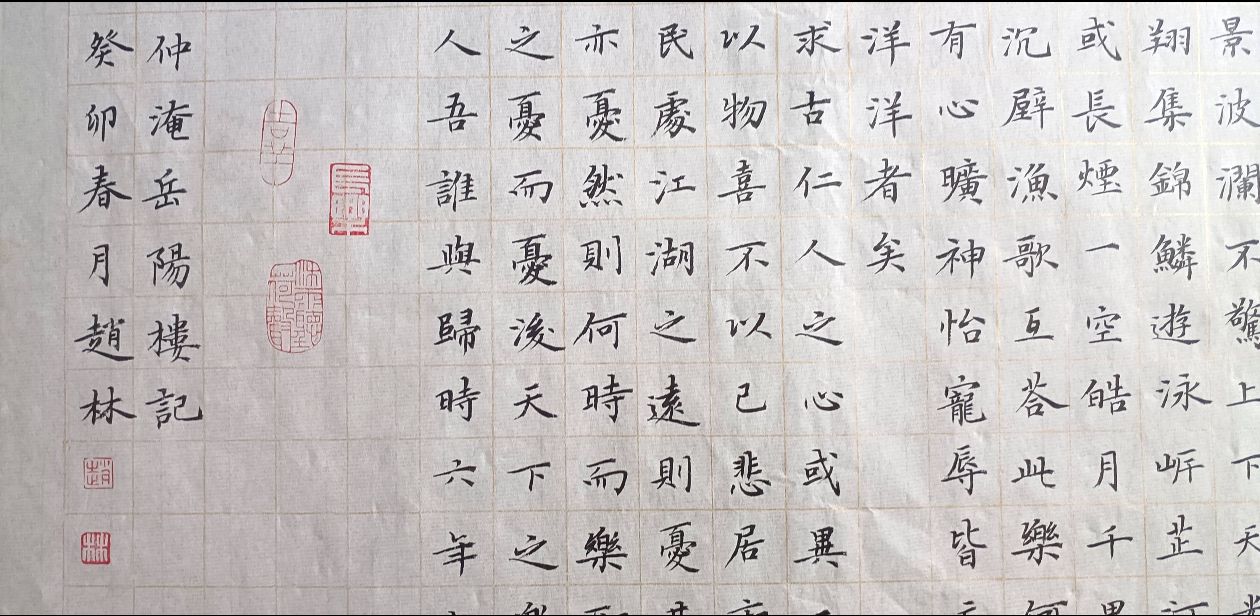 景波瀾不驚上下天
翔集錦鱗遊泳岸芷
或長煙一空皓月千
沉壁漁歌互荅此樂
有心曠神怡寵辱皆
洋洋者矣
求古仁人之心或異
以物喜不以己悲居
民處江湖之遠則憂
亦憂然則何時而樂
之憂而憂後天下之樂
人吾誰與歸時六年
仲淹岳陽樓記
癸卯春月趙林
趙
林